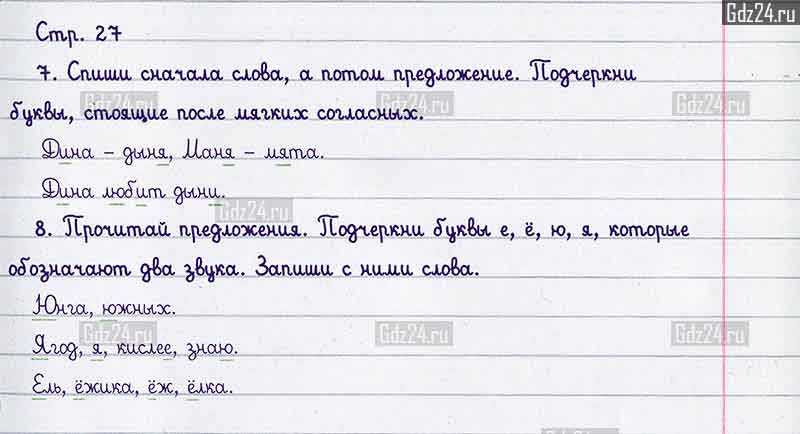 Gdz24.ru
Стр. 27
7. Спиши сначала слова, а потом предложение. Подчеркни
Gdz24.ru Gdz24.ru Gdz24.ru
буквы, стоящие после мягких согласных.
Дина – дыня, Маня – мята.
Дина любит дыни.
Gdz24.ru
8. Прочитай предложения. Подчеркни буквы е, ё, ю, я, которые
обозначают два звука. Запиши с ними слова.
Юнга, южных.
Gdz24.ru Gdz24.ru Gdz24.ru
Ягод, я, кислее, знаю.
Ель, ёжика, ёж, ёлка.